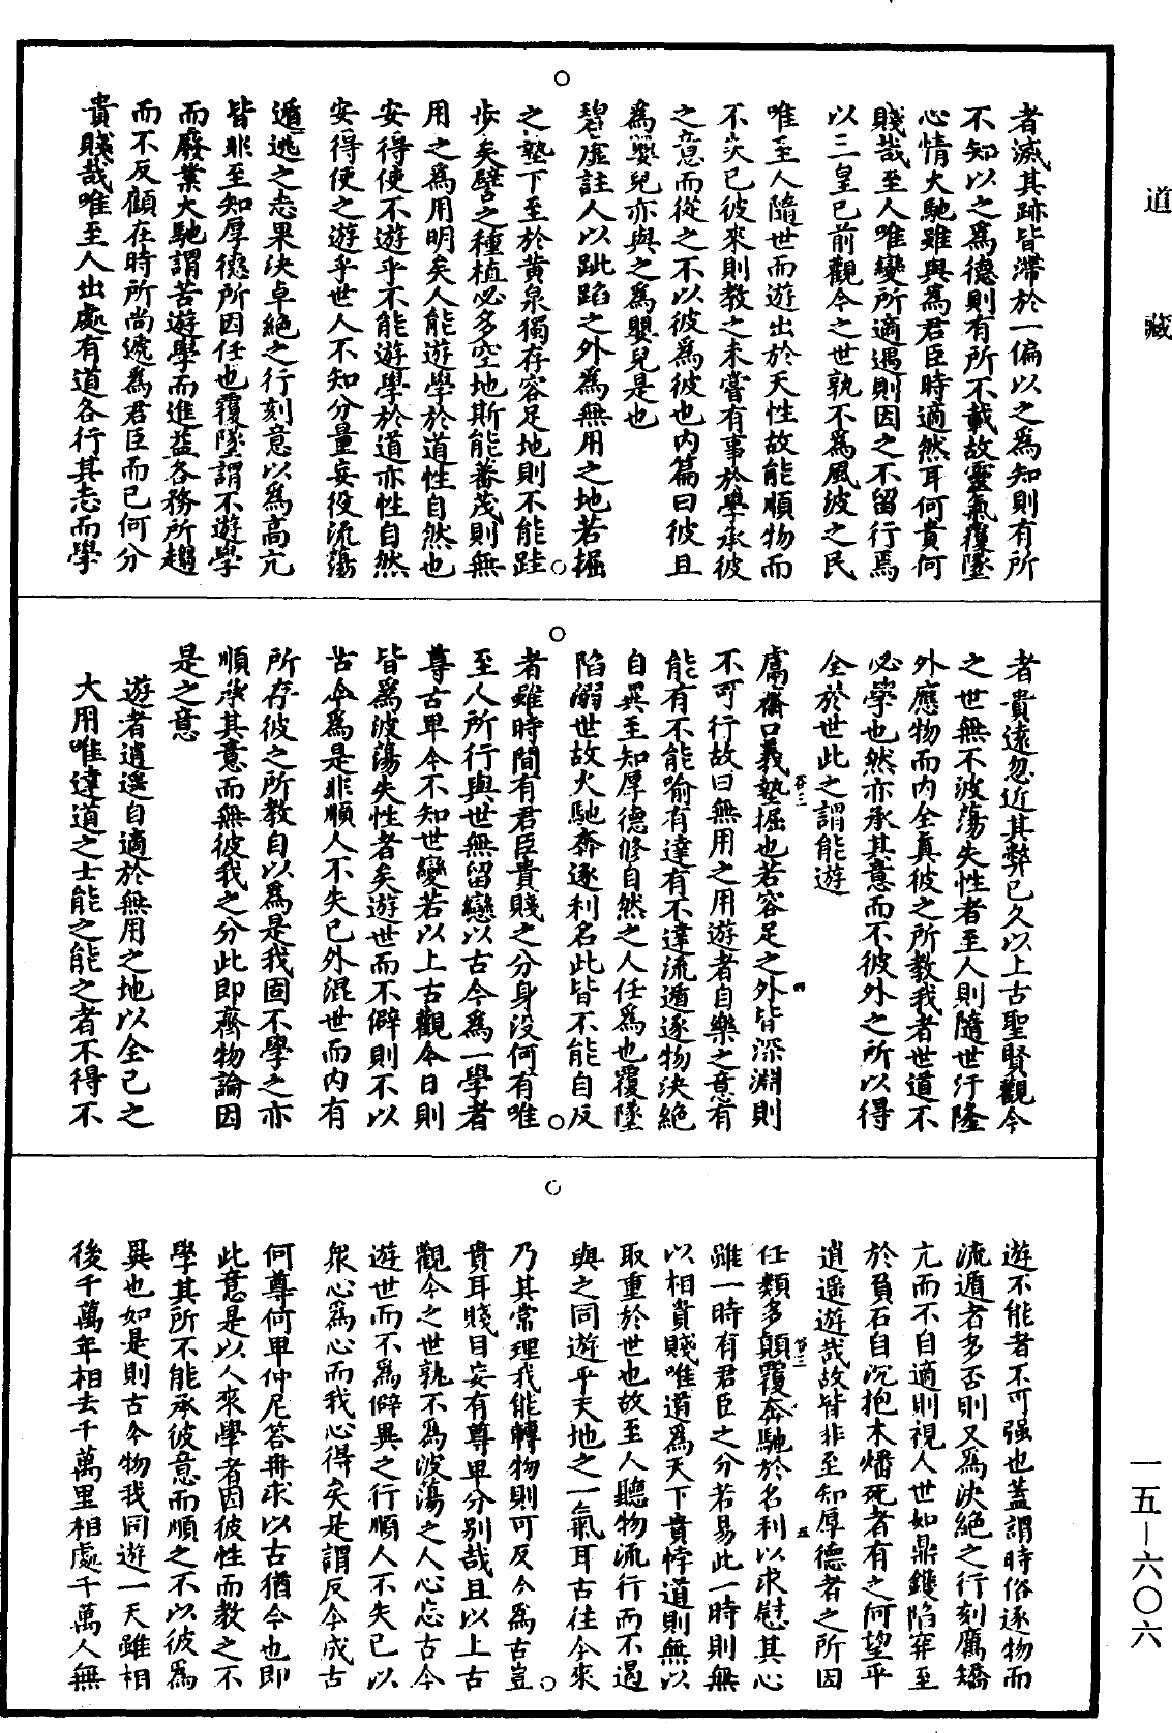 道藏
者滅其跡皆滯於一偏以之爲知則有所
不知以之爲德則有所不載故靈氣覆墜
心情大馳雖與爲君臣時適然耳何貴何
賤哉至人唯變所適遇則因之不留行焉
以三皇已前觀今之世孰不爲風波之民
唯至人隨世而遊出於天性故能順物而
不失已彼來則教之未嘗有事於學承彼
之意而從之不以彼爲彼也內篇曰彼且
爲嬰兒亦與之爲嬰兒是也
碧虛註人以跐蹈之外爲無用之地若掘
之墊下至於黃泉獨存容足地則不能跬
步矣譬之種植必多空地斯能蕃茂則無
用之爲用明矣人能遊學於道性自然也
安得使不遊乎不能遊學於道亦性自然
安得使之遊乎世人不知分量妄役流蕩
遁逃之志果決卓絕之行刻意以爲高亢
皆非至知厚德所因任也覆墜謂不遊學
而廢業大馳謂苦遊學而進益各務所趨
而不反顧在時所尚遞爲君臣而已何分
貴賤哉唯至人出處有道各行其志而學
者貴遠忽近其弊已久以上古聖賢觀今
之世無不波蕩失性者至人則隨世汙隆
外應物而內全真彼之所教我者世道不
必學也然亦承其意而不彼外之所以得
全於世此之謂能遊
鬳齋口義墊掘也若容足之外皆深淵則
不可行故曰無用之用遊者自樂之意有
能有不能喻有達有不達流遁逐物決絕
自異至知厚德修自然之人任爲也覆墜
陷溺世故火馳奔逐利名此皆不能自反
者雖時間有君臣貴賤之分身沒何有唯
至人所行與世無留戀以古今爲一學者
尊古卑今不知世變若以上古觀今日則
皆爲波蕩失性者矣遊世而不僻則不以
古今爲是非順人不失已外混世而內有
所存彼之所教自以爲是我固不學之亦
順承其意而無彼我之分此即齊物論因
是之意
遊者逍遥自適於無用之地以全己之
大用唯達道之士能之能之者不得不
遊不能者不可强也蓋謂時俗逐物而
流遁者多否則又爲決絕之行刻厲矯
亢而不自適則視人世如鼎鑊陷穽至
於負石自沉抱木燔死者有之何望乎
逍遥遊哉故皆非至知厚德者之所因
任類多顛覆奔馳於名利以求慰其心
雖一時有君臣之分若易此一時則無
以相貴賤唯道爲天下貴悖道則無以
取重於世也故至人聽物流行而不遏
與之同遊乎天地之一氣耳古往今來
乃其常理我能轉物則可反今爲古豈
貴耳賤目妄有尊卑分別哉且以上古
觀今之世孰不爲波蕩之人心忘古今
遊世而不爲僻異之行順人不失已以
衆心爲心而我心得矣是謂反今成古
何尊何卑仲尼答冉求以古猶今也即
此意是以人來學者因彼性而教之不
學其所不能承彼意而順之不以彼爲
異也如是則古今物我同遊一天雖相
後千萬年相去千萬里相處千萬人無
一五—六〇六